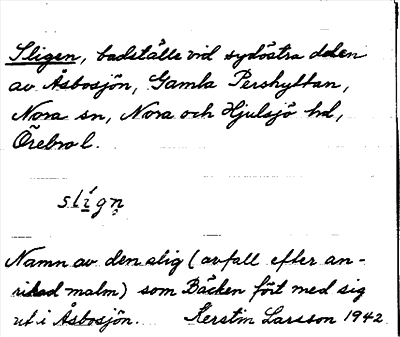 Sligen, badställe vid sydöstra delen
av Åsbosjön, Gamla Pershyttan,
Nora sn, Nora och Hjulsjö hd,
Örebro l.
slígn̥
Namn av den slig (avfall efter an-
rikad malm) som Bäcken fört med sig
ut i Åsbosjön. Kerstin Larsson 1942